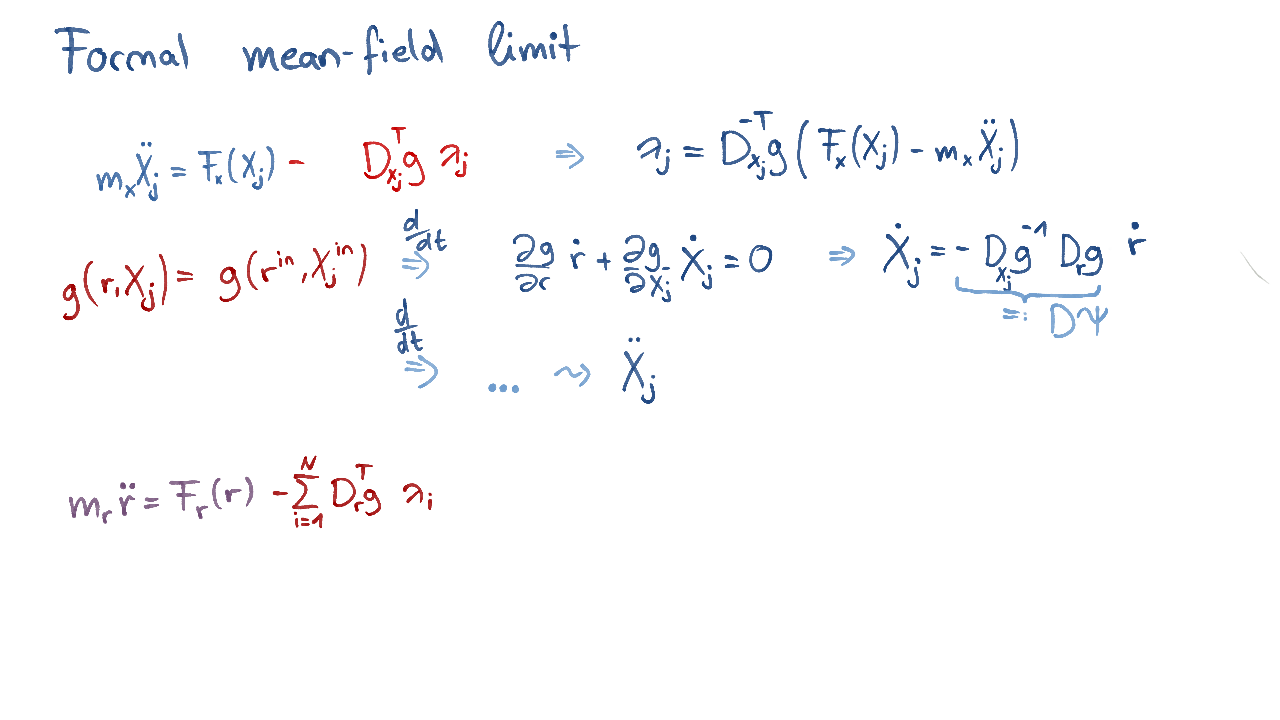 Formal mean-field limit
m_x Ẍ_j = F_x(X_j) - D_{x_j}^T g λ_j ⇒ λ_j = D_{x_j}^{-T} g ( F_x(X_j) - m_x Ẍ_j )
g(r, X_j) = g(r^{in}, X_j^{in}) d/dt ⇒ ∂g/∂r ṙ + ∂g/∂X_j Ẋ_j = 0 ⇒ Ẋ_j = - D_{x_j} g^{-1} D_r g ṙ
=: DΨ
d/dt ⇒ ... ⇝ Ẍ_j
m_r r̈ = F_r(r) - ∑_{i=1}^N D_r^T g λ_i